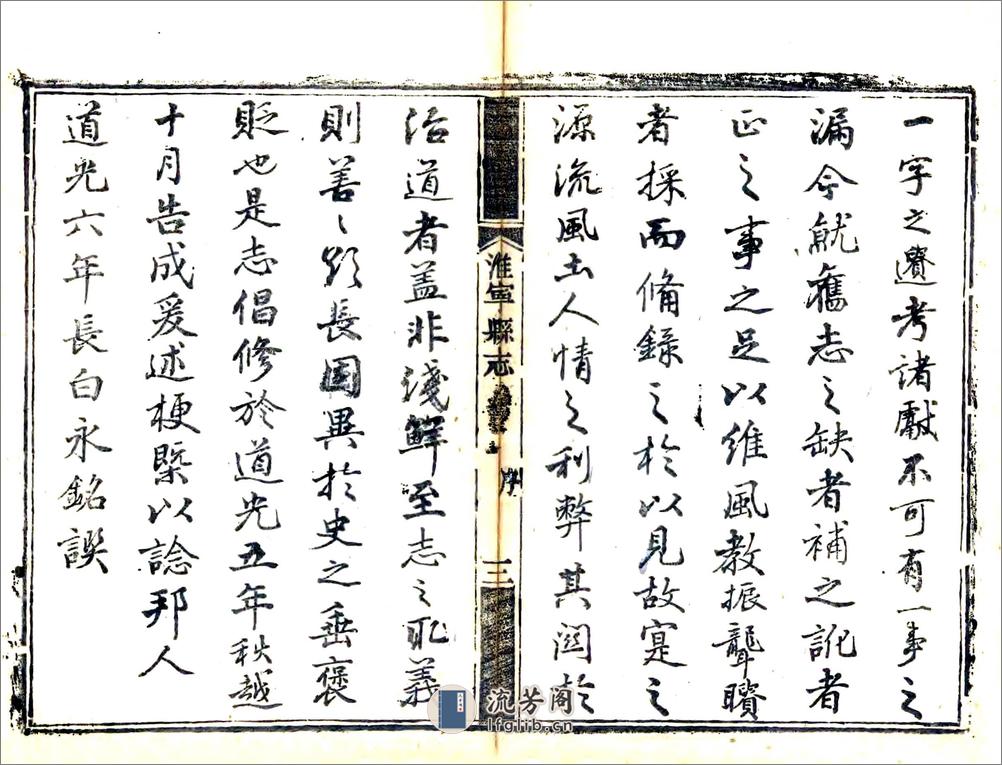 一字之遺考諸獻不可有一事之
漏今就舊志之缺者補之訛者
正之事之足以維風教振聾聵
者採而備錄之於以見故寔之
源流風土人情之利弊其関於
淮寧縣志
序
三
治道者盖非淺鮮至志之取義
則善善欲長固異於史之垂褒
貶也是志倡修於道光五年秋越
十月告成爰述梗槩以諗邦人
道光六年長白永銘譔
流芳阁
lfglib.cn